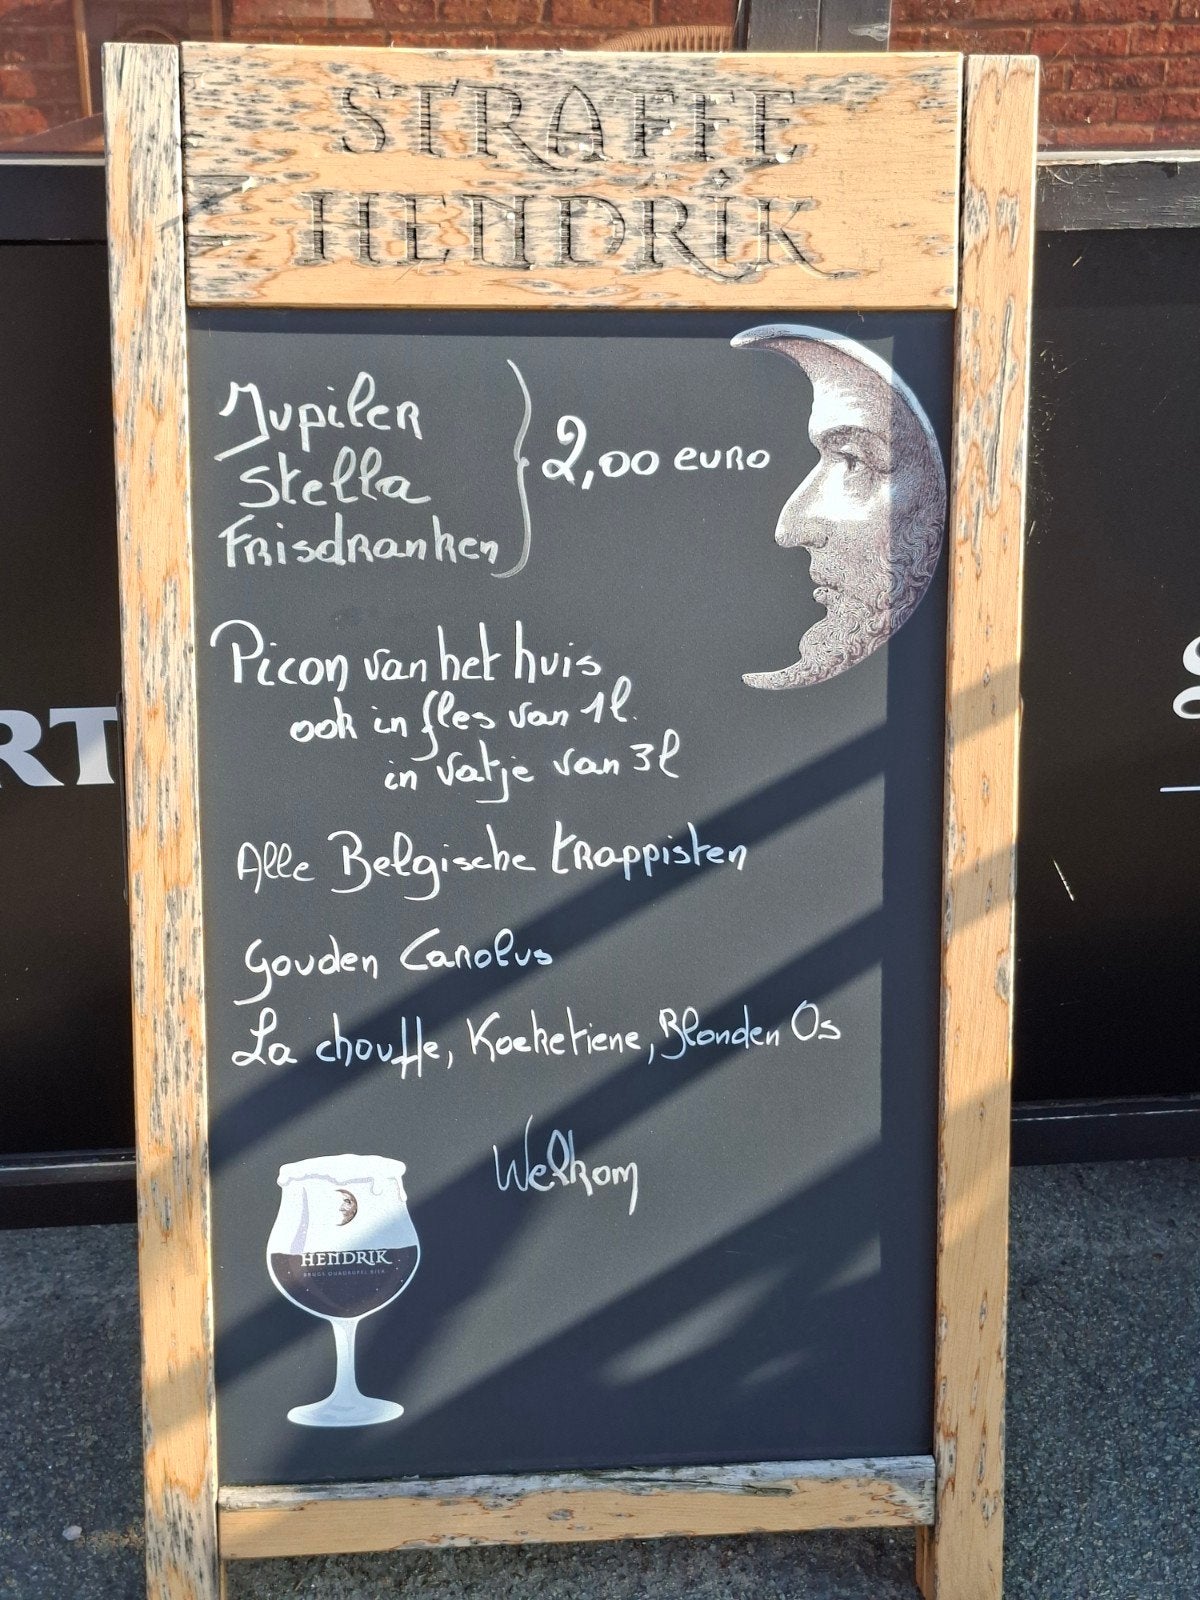 STRAFFE
HENDRIK
Jupiler
Stella
Frisdranken
2,00 euro
Picon van het huis
ook in fles van 1l.
in vatje van 3l
Alle Belgische trappisten
Gouden Carolus
La chouffe, Koeketiene, Blonden Os
Welkom
HENDRIK
BRUGS QUADRUPEL BIER
RT